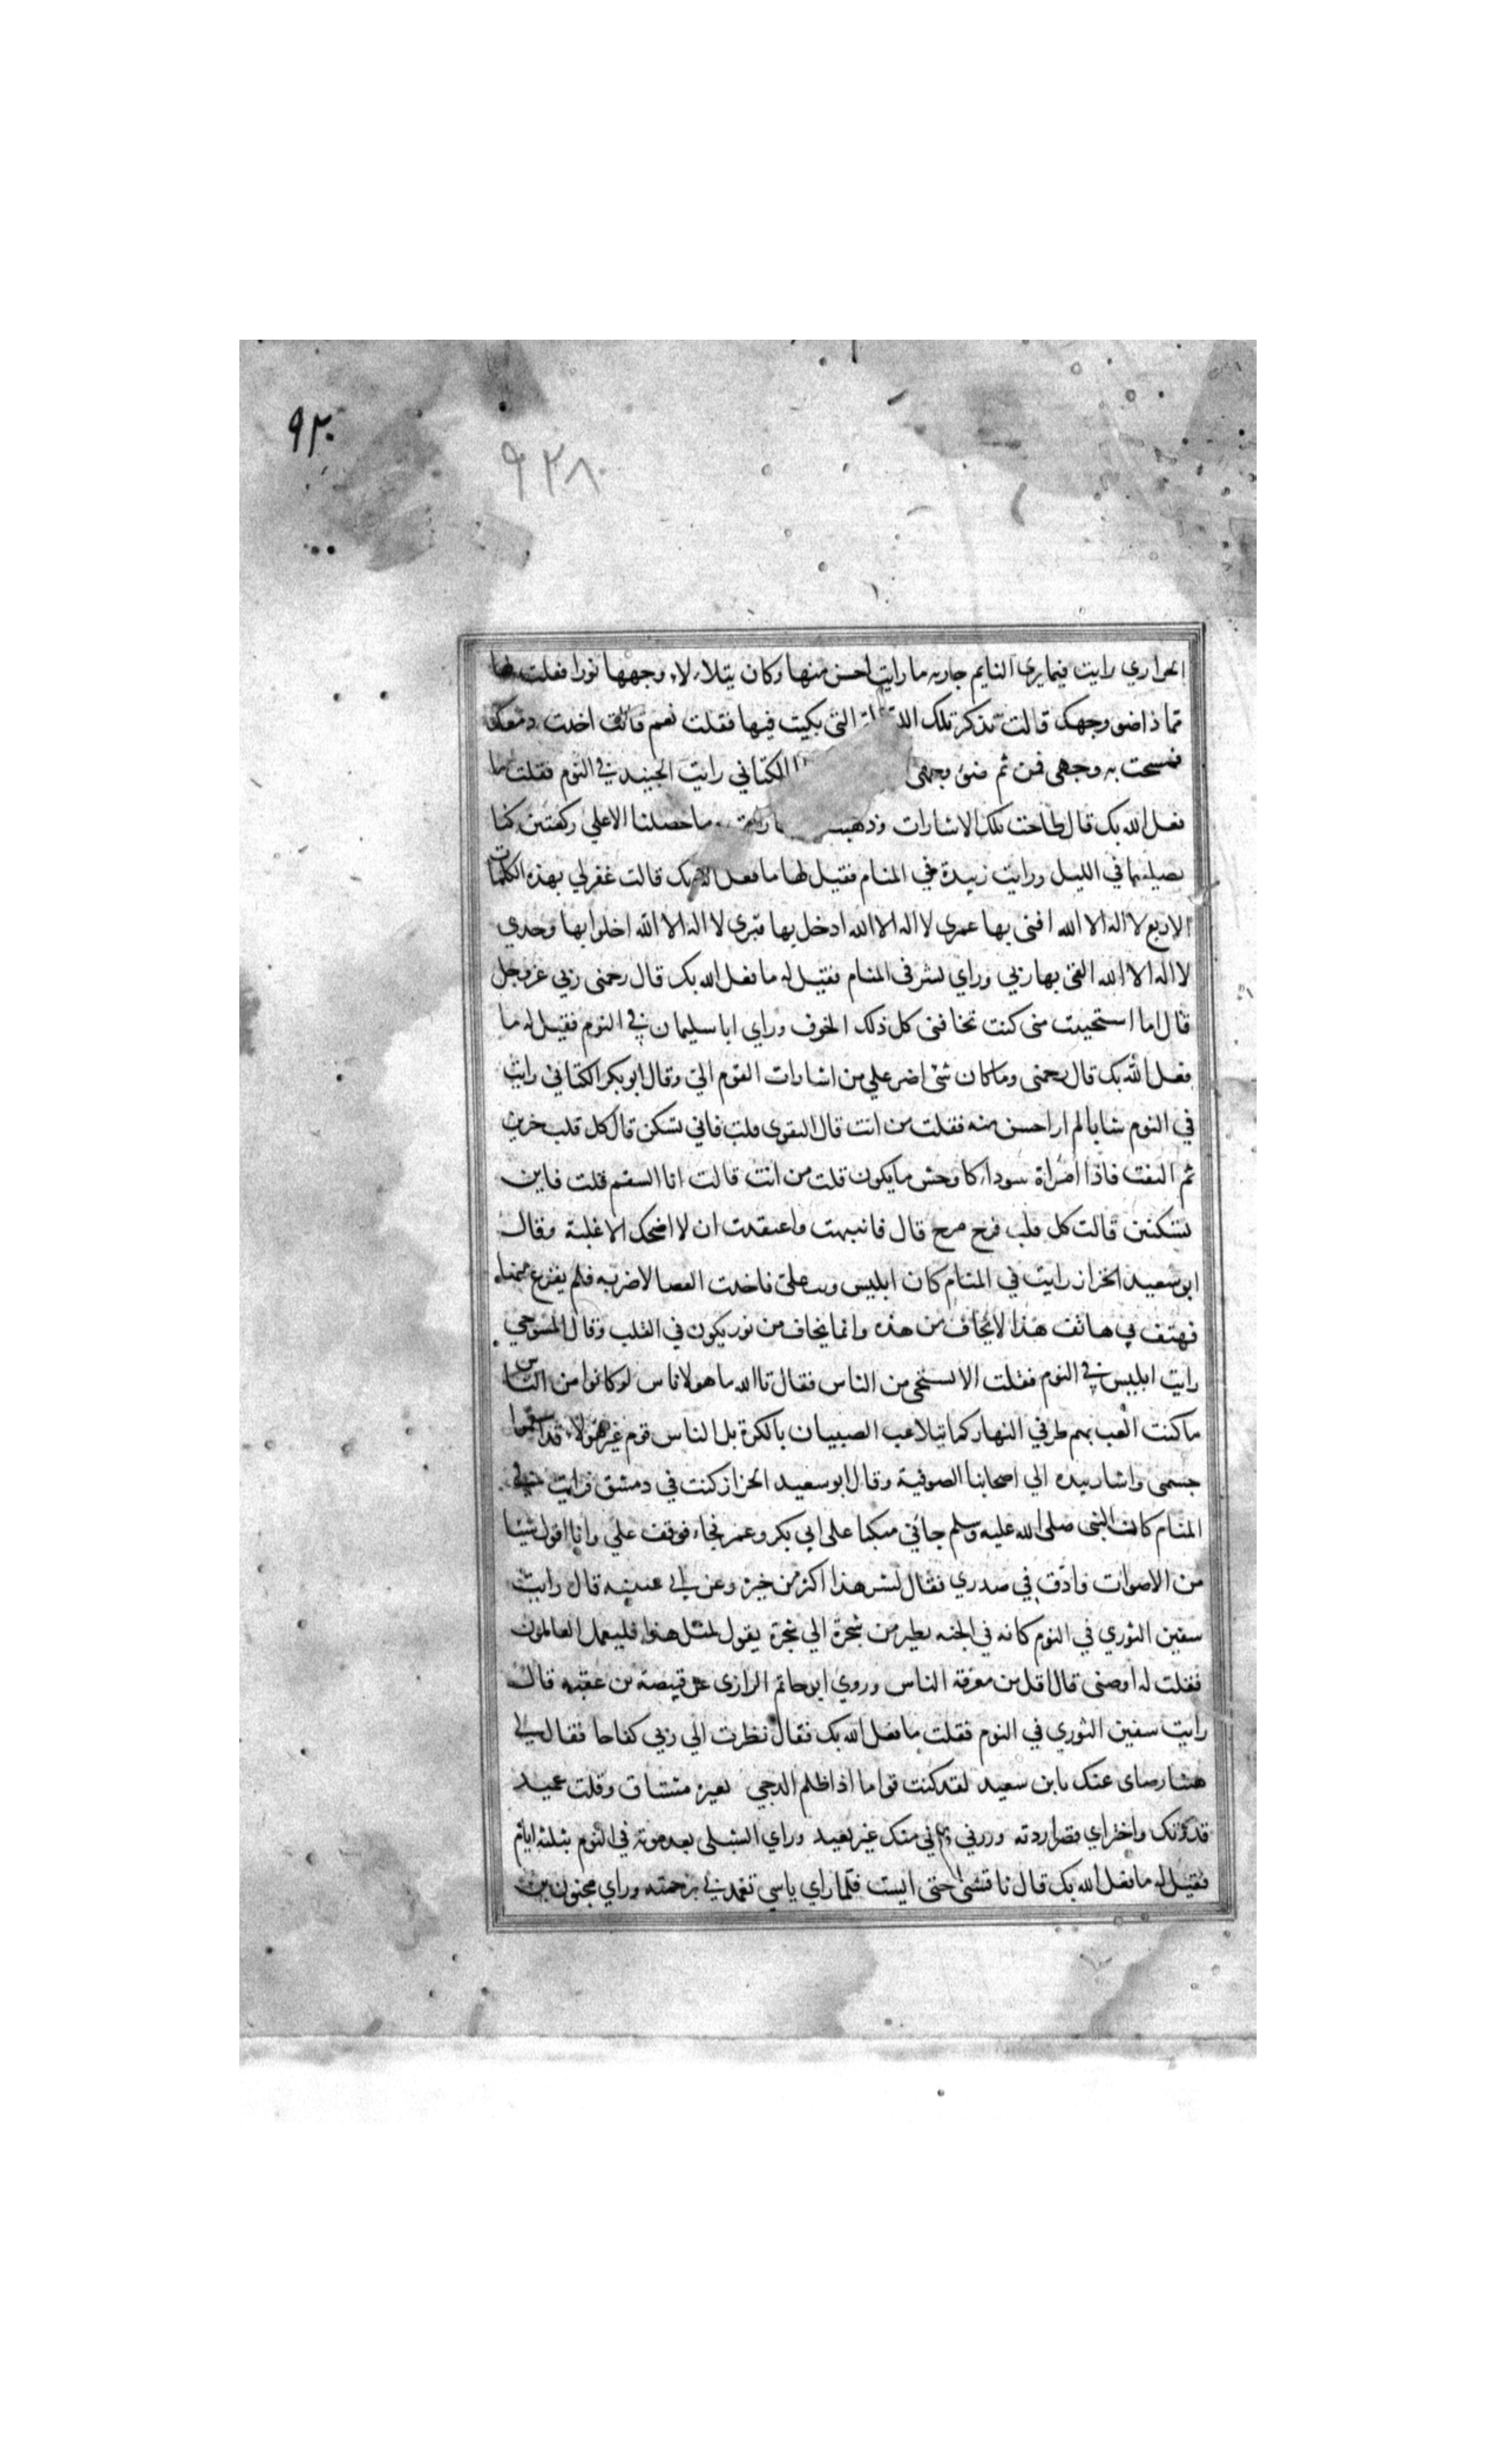 ٩٢٠
٩٢٨
الحواري رايت فيما يري النايم جاريه ما رايت احسن منها وكان يتلاءلاء وجهها نورا فقلت لها
مما ذا ضو وجهك قالت تذكر تلك الليلة التي بكيت فيها فقلت نعم قالت اخذت دمعك
فمسحت به وجهي فمن ثم ضوء وجهي الكتاني رايت الجنيد في النوم فقلت ما
فعل الله بك قال طاحت تلك الاشارات وذهبت ما حصلنا الا علي ركعتين كنا
نصليهما في الليل ورايت زبيدة في المنام فقيل لها ما فعل الله بك قالت غفر لي بهذه الكلمات
الاربع لا اله الا الله افني بها عمري لا اله الا الله ادخل بها قبري لا اله الا الله اخلوا بها وحدي
لا اله الا الله القي بها ربي وراي بشر في المنام فقيل له ما فعل الله بك قال رحمني ربي عز وجل
قال اما استحييت مني كنت تخافني كل ذلك الخوف وراي ابا سليمان في النوم فقيل له ما
فعل الله بك قال رحمني وما كان شي اضر علي من اشارات القوم الي وقال ابو بكر الكتاني رايت
في النوم شابا لم ار احسن منه فقلت من انت قال التقوي قلت فاني تسكن قال كل قلب حزين
ثم التفت فاذا امراة سوداء كاوحش ما يكون قلت من انت قالت انا السقم قلت فاين
تسكنين قالت كل قلب فرح مرح قال فانتبهت واعتقدت ان لا اضحك الا غلبة وقال
ابو سعيد الخراز رايت في المنام كان ابليس وثب علي فاخذت العصا لاضربه فلم يفزع منها
فهتف بي هاتف هذا لا يخاف من هذه وانما يخاف من نور يكون في القلب وقال المسوحي
رايت ابليس في النوم فقلت الا تستحي من الناس فقال تالله ما هولا ناس لو كانوا من الناس
ما كنت العب بهم طرفي النهار كما يتلاعب الصبيان بالكرة بل الناس قوم غير هولاء قد اسقموا
جسمي واشار بيده الي اصحابنا الصوفية وقال ابو سعيد الخراز كنت في دمشق فرايت في
المنام كان النبي صلي الله عليه وسلم جاني متكيا علي ابي بكر وعمر فجاء فوقف علي وانا اقول شيئا
من الاصوات وادق في صدري فقال لشر هذا اكثر من خيره وعن ابي عيينه قال رايت
سفين الثوري في النوم كانه في الجنه يطير من شجرة الي شجرة يقول لمثل هذا فليعمل العاملون
فقلت له اوصني قال اقل من معرفة الناس وروي ابو حاتم الرازي عن قبيصة بن عقبه قال
رايت سفين الثوري في النوم فقلت ما فعل الله بك فقال نظرت الي ربي كفاحا فقال لي
هنيئا رضاي عنك يابن سعيد لقد كنت قواما اذا اظلم الدجي بعبرة مشتاق وقلب عميد
فدونك واختر اي قصر اردته وزرني فاني منك غير بعيد وراي الشبلي بعد موته في النوم بثلثه ايام
فقيل له ما فعل الله بك قال ناقشني حتي ايست فلما راي ياسي تغمدني برحمته وراي مجنون بن